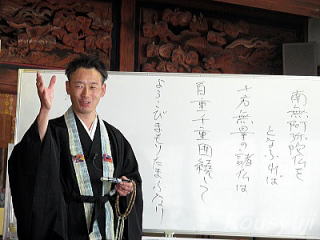 南無阿弥陀仏を
となふれば
十方無量の諸仏は
百重千重囲繞して
よろこびまもりたまふなり